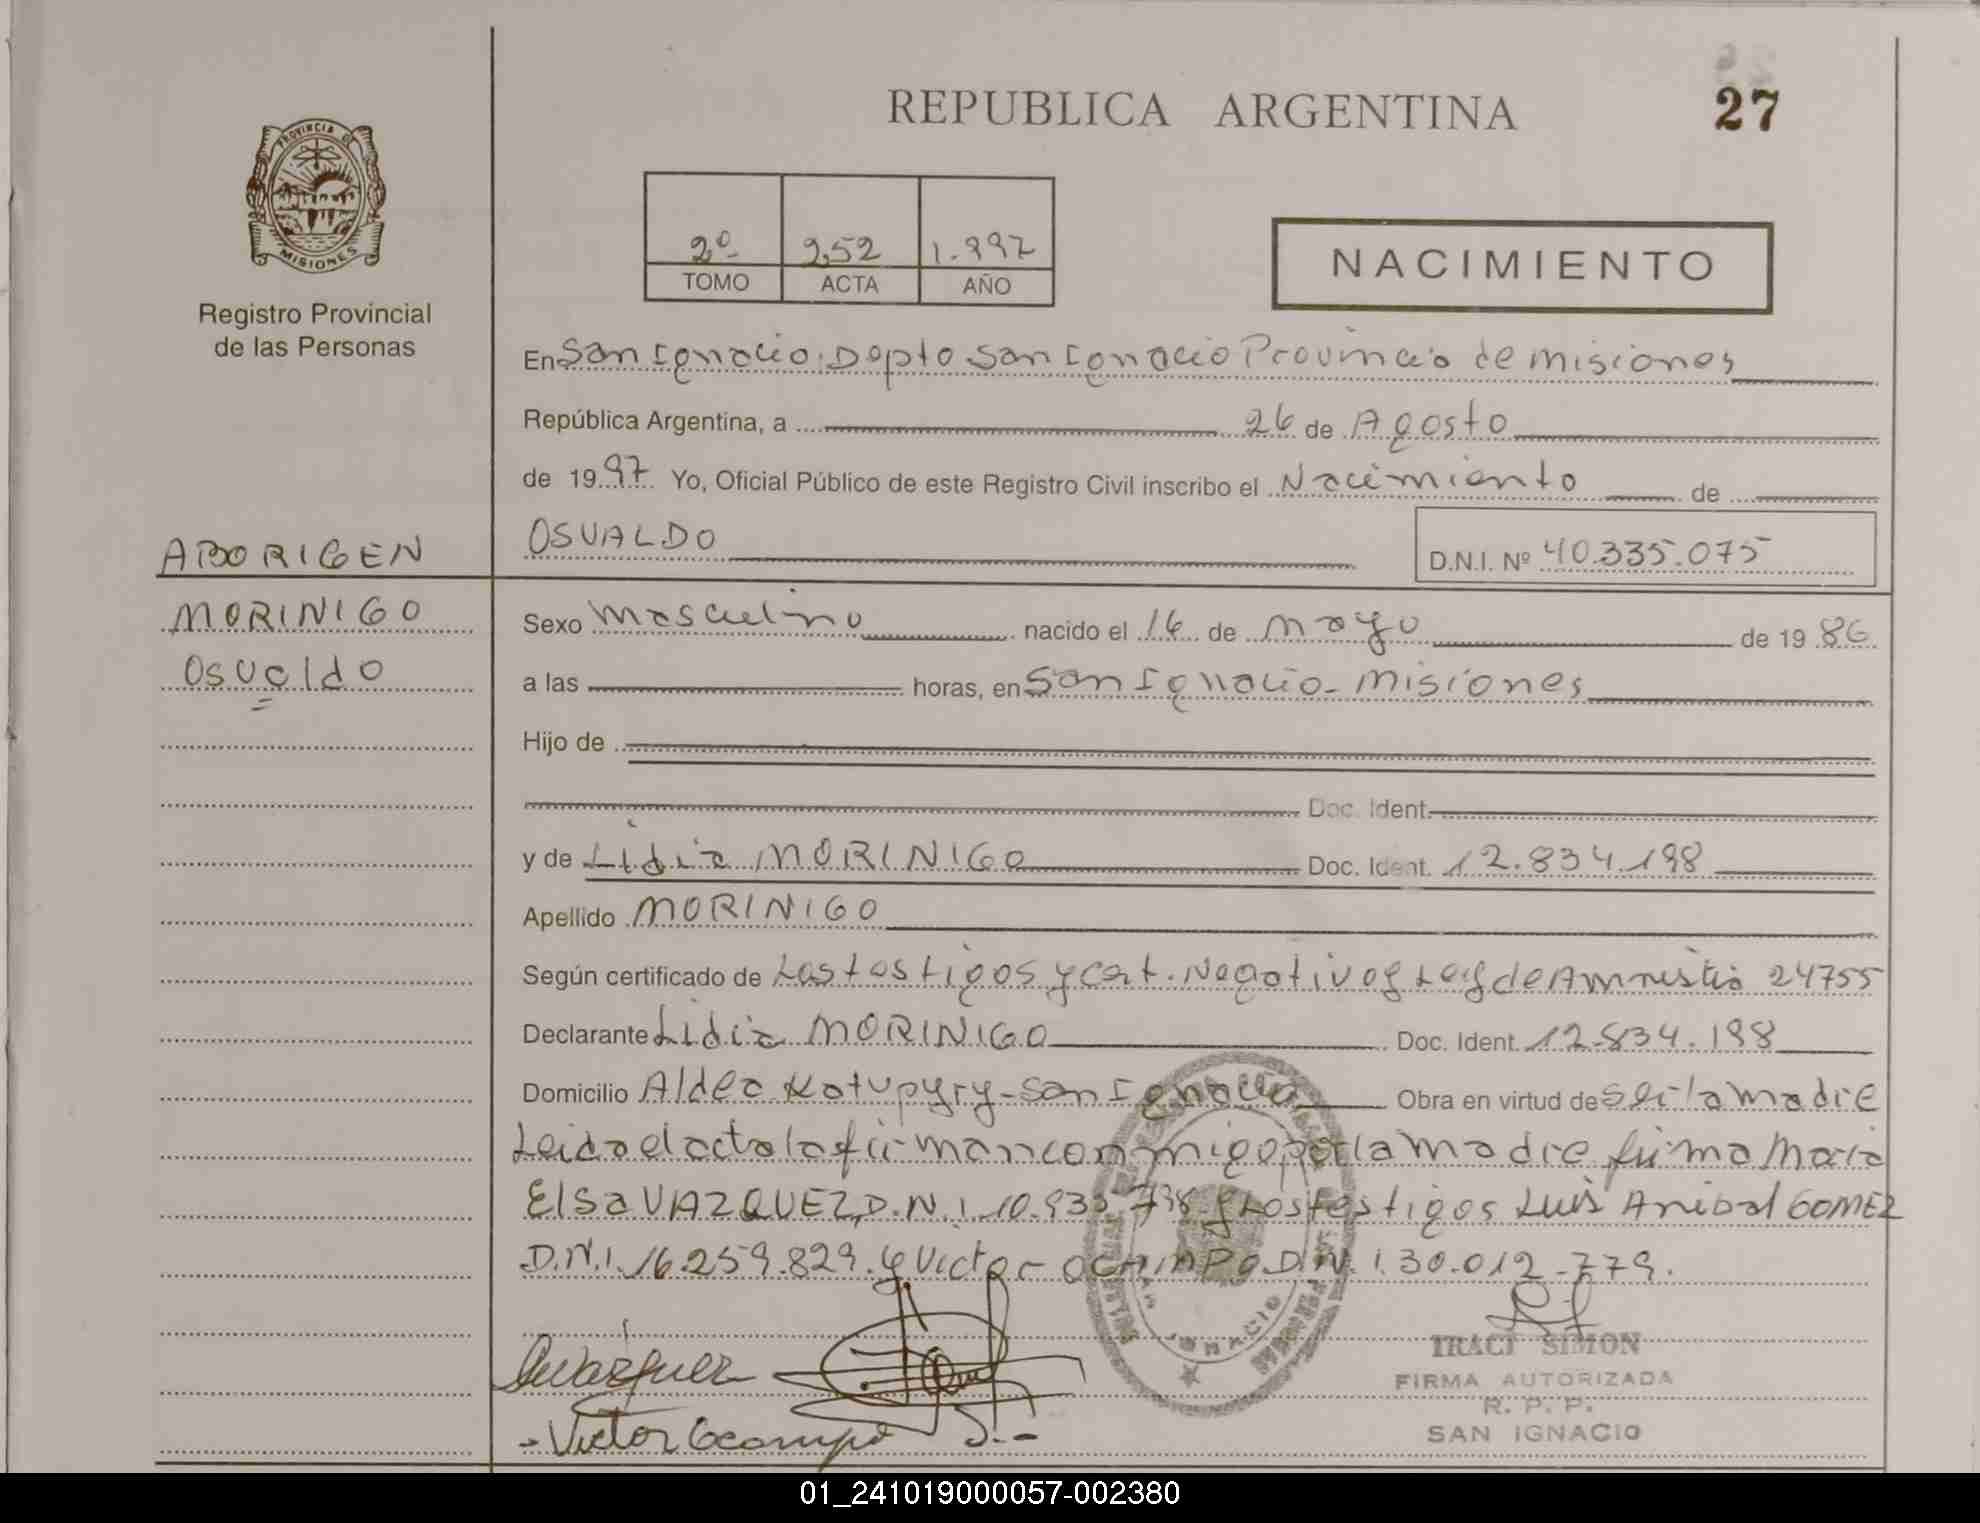 REPUBLICA ARGENTINA
27
PROVINCIA DE
MISIONES
Registro Provincial
de las Personas
2º 252 1.997
TOMO ACTA AÑO
NACIMIENTO
En San Ignacio. Dopto San Ignacio Provincia de misiones
República Argentina, a 26 de Agosto
de 1997 Yo, Oficial Público de este Registro Civil inscribo el Nacimiento de
OSVALDO
D.N.I. Nº 40.335.075
ABORIGEN
MORINIGO
Osvaldo
Sexo masculino nacido el 16 de mayo de 1986
a las horas, en San Ignacio - misiones
Hijo de
Doc. Ident.
y de Lidia MORINIGO Doc. Ident. 12.834.198
Apellido MORINIGO
Según certificado de Los testigos y cert. Negativo y Ley de Amnistia 24755
Declarante Lidia MORINIGO Doc. Ident. 12.834.198
Domicilio Aldea Katupyry - San Ignacio Obra en virtud de ser la madre
Leida el acta la firman conmigo por la madre firma Maria
Elsa VAZQUEZ, D.N.I. 10.935.738 y Los testigos Luis Anibal GOMEZ
D.N.I. 16.259.829. y Victor OCAMPO D.N.I. 30.012.779.
Victor Ocampo
IGNACIO
TRACI SIMON
FIRMA AUTORIZADA
R. P. P.
SAN IGNACIO
01_241019000057-002380